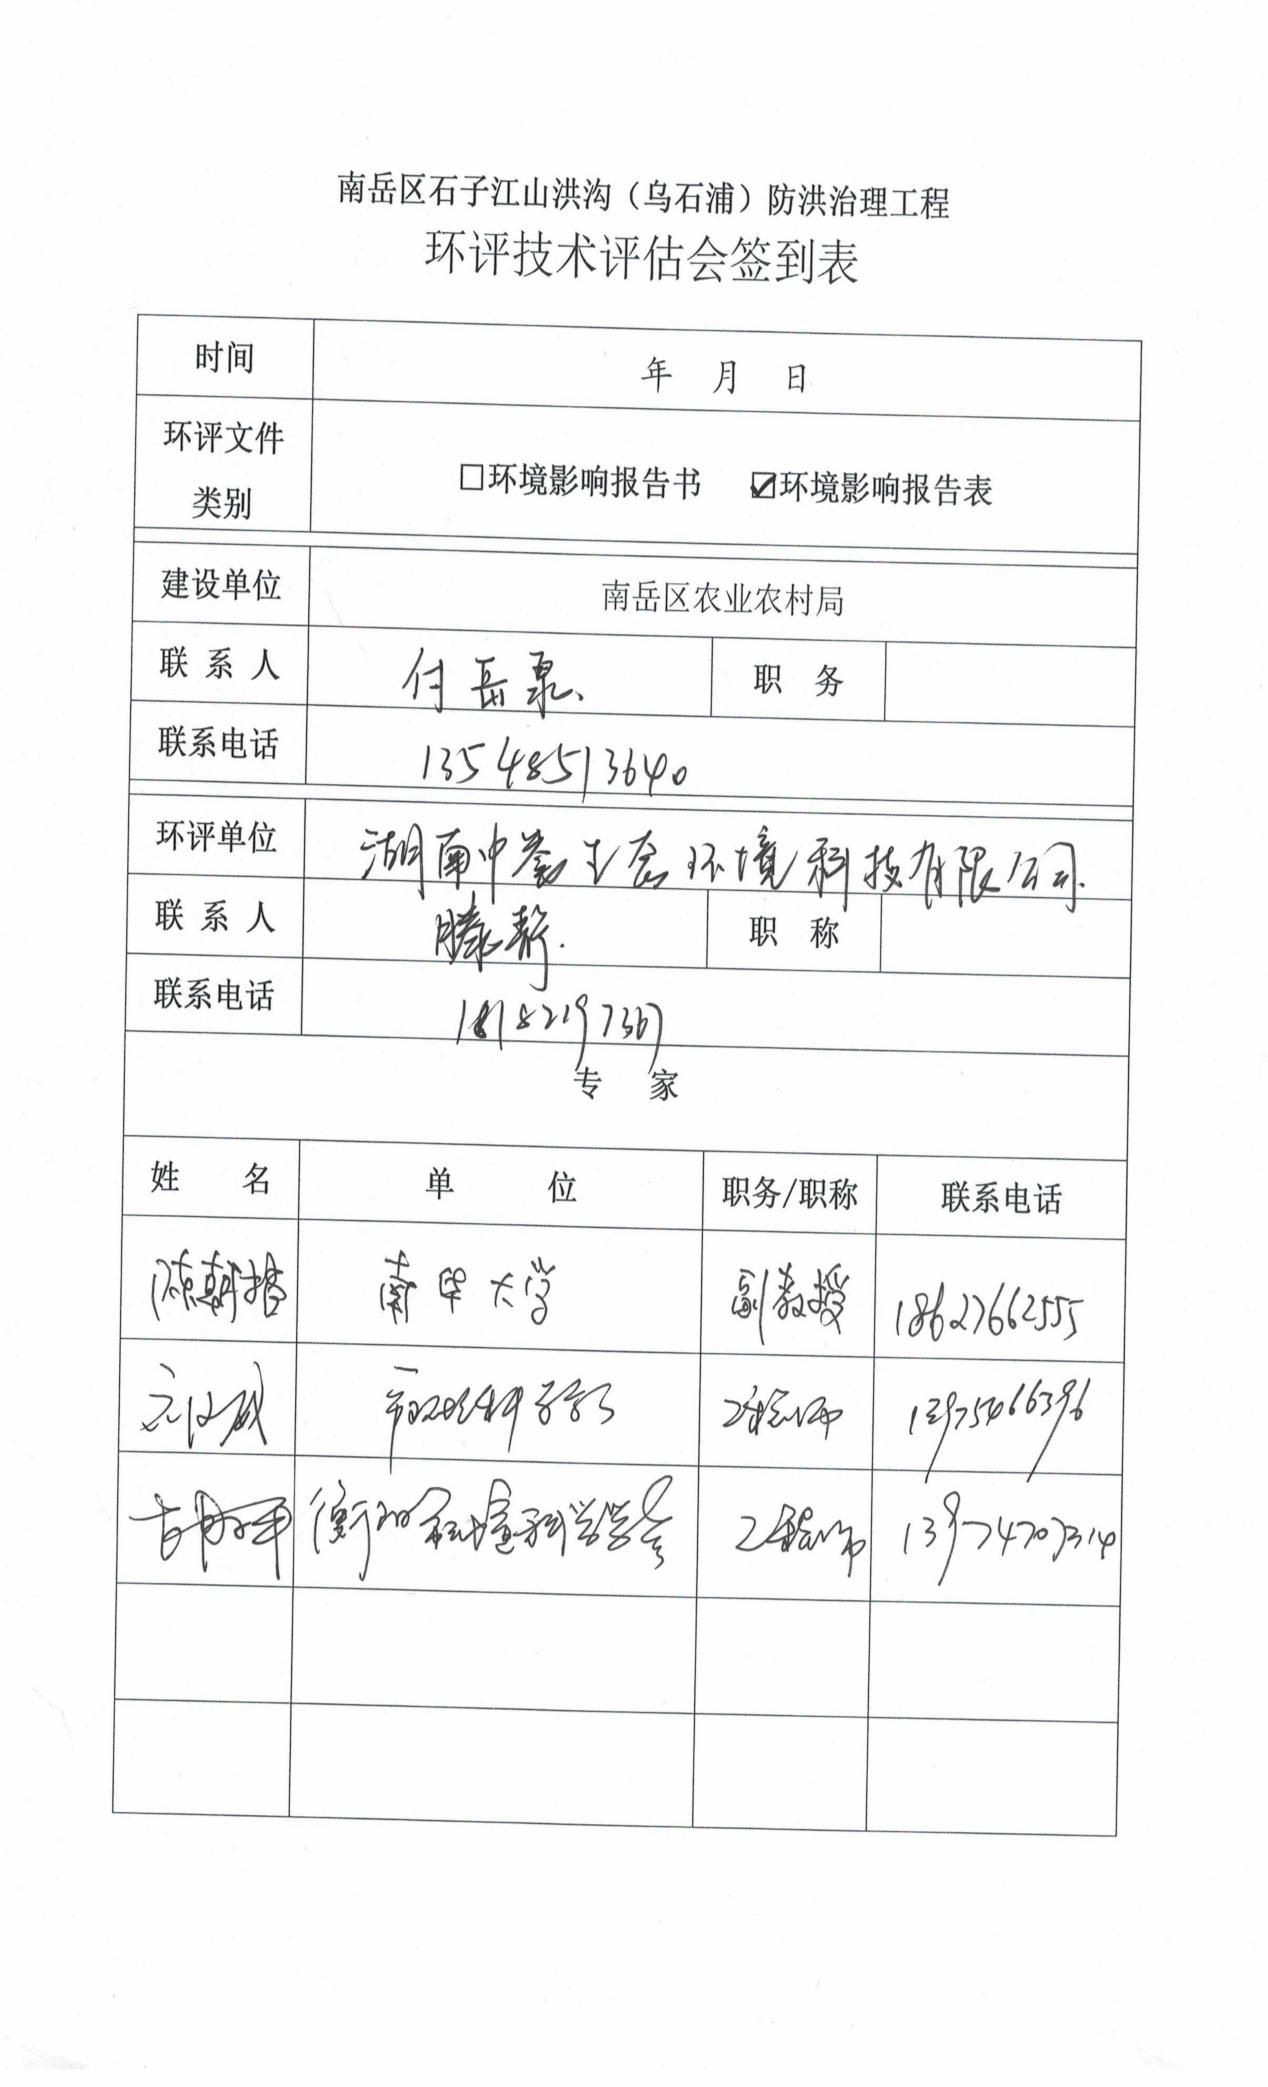 南岳区石子江山洪沟（乌石浦）防洪治理工程
环评技术评估会签到表
时间 年 月 日
环评文件类别 □环境影响报告书 ☑环境影响报告表
建设单位 南岳区农业农村局
联系人 付岳泉 职务
联系电话 13548513640
环评单位 湖南中誉生态环境科技有限公司
联系人 滕静 职称
联系电话 18182197367
专 家
姓 名 单 位 职务/职称 联系电话
陈朝 南华大学 副教授 18627662555
市环境科学学会 工程师 13975466396
胡 衡阳市环境科学学会 工程师 13974707314